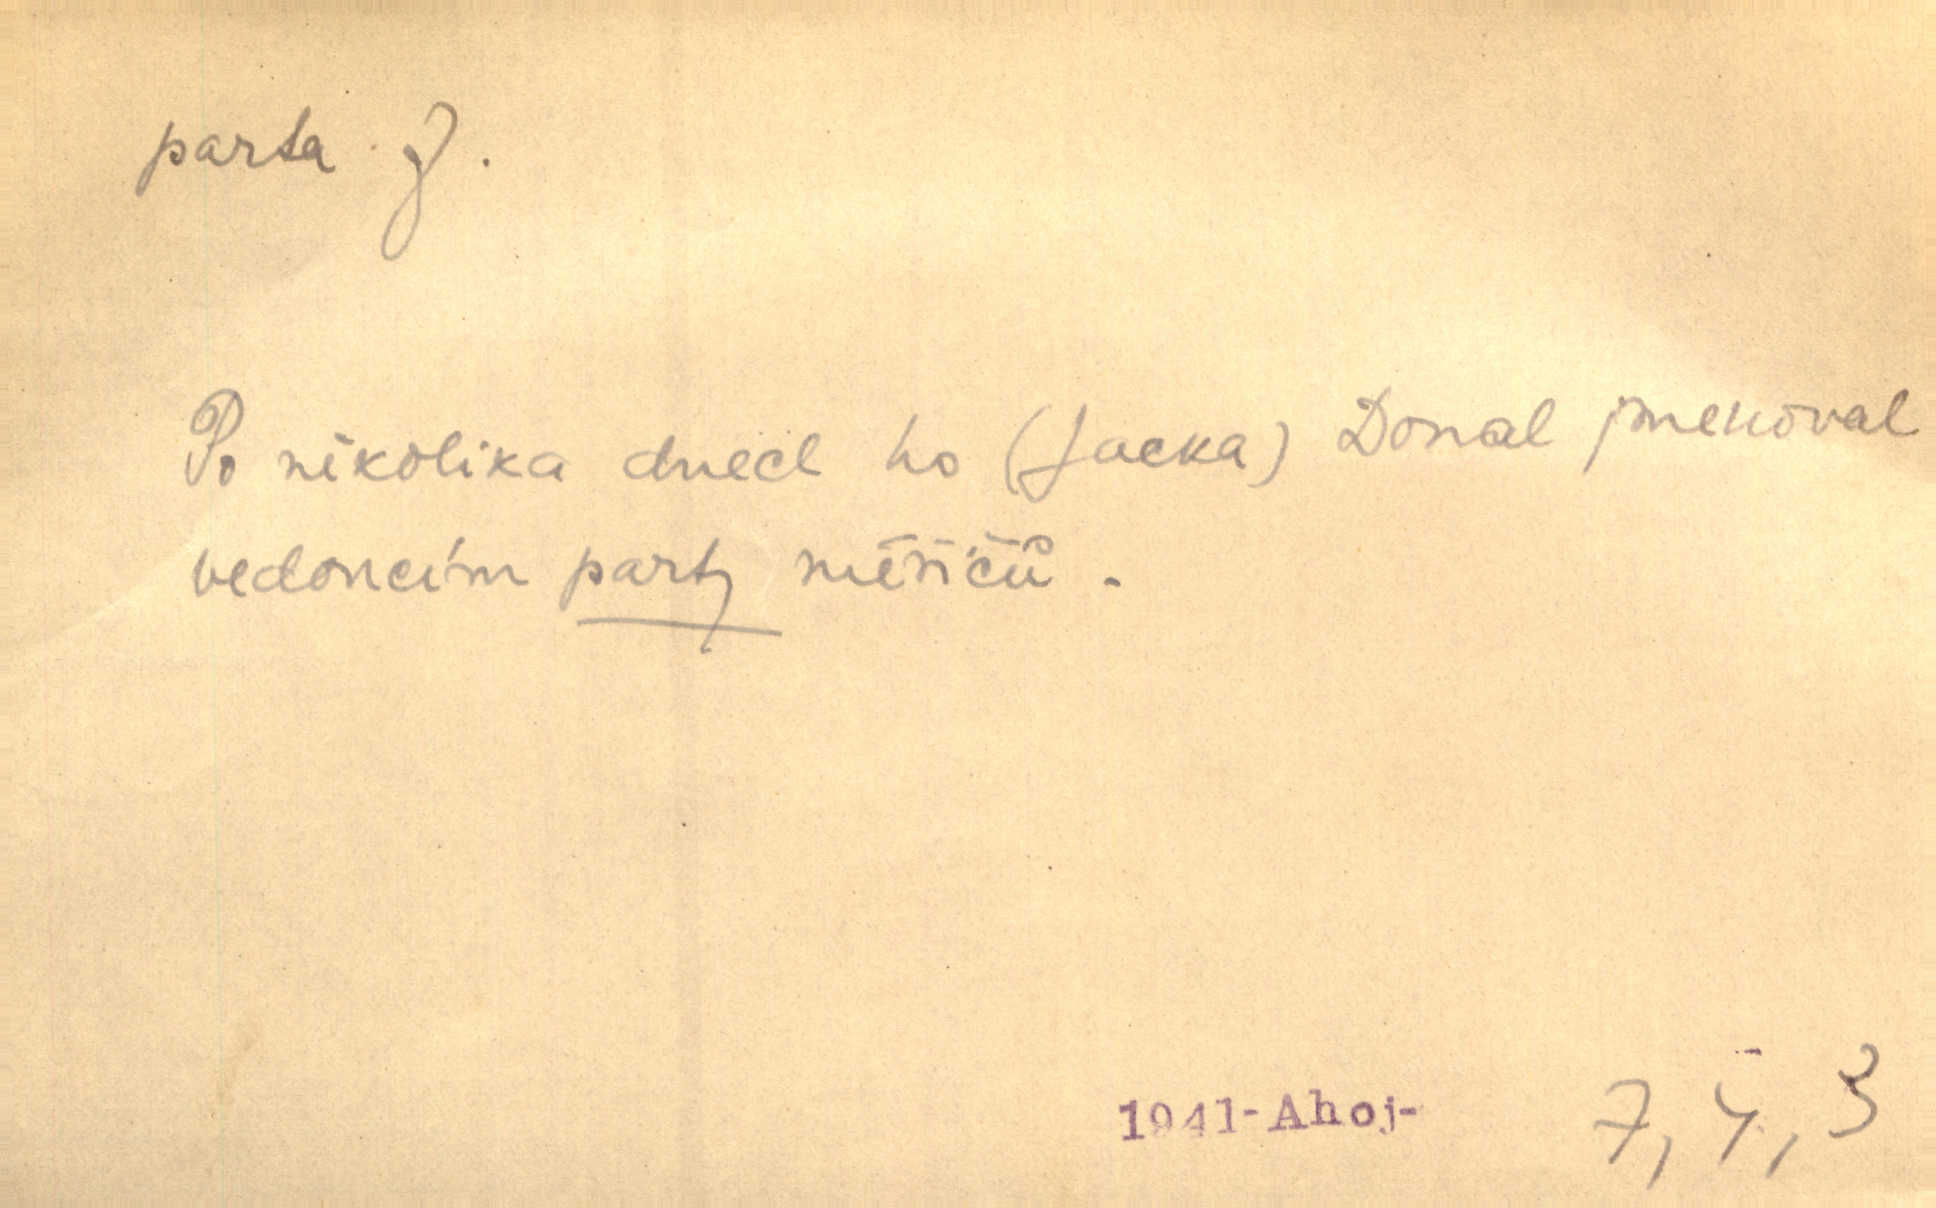 parta f.
Po několika dnech ho (Jacka) Donal jmenoval
vedoucím party měřičů.
1941-Ahoj- 7, 4, 3